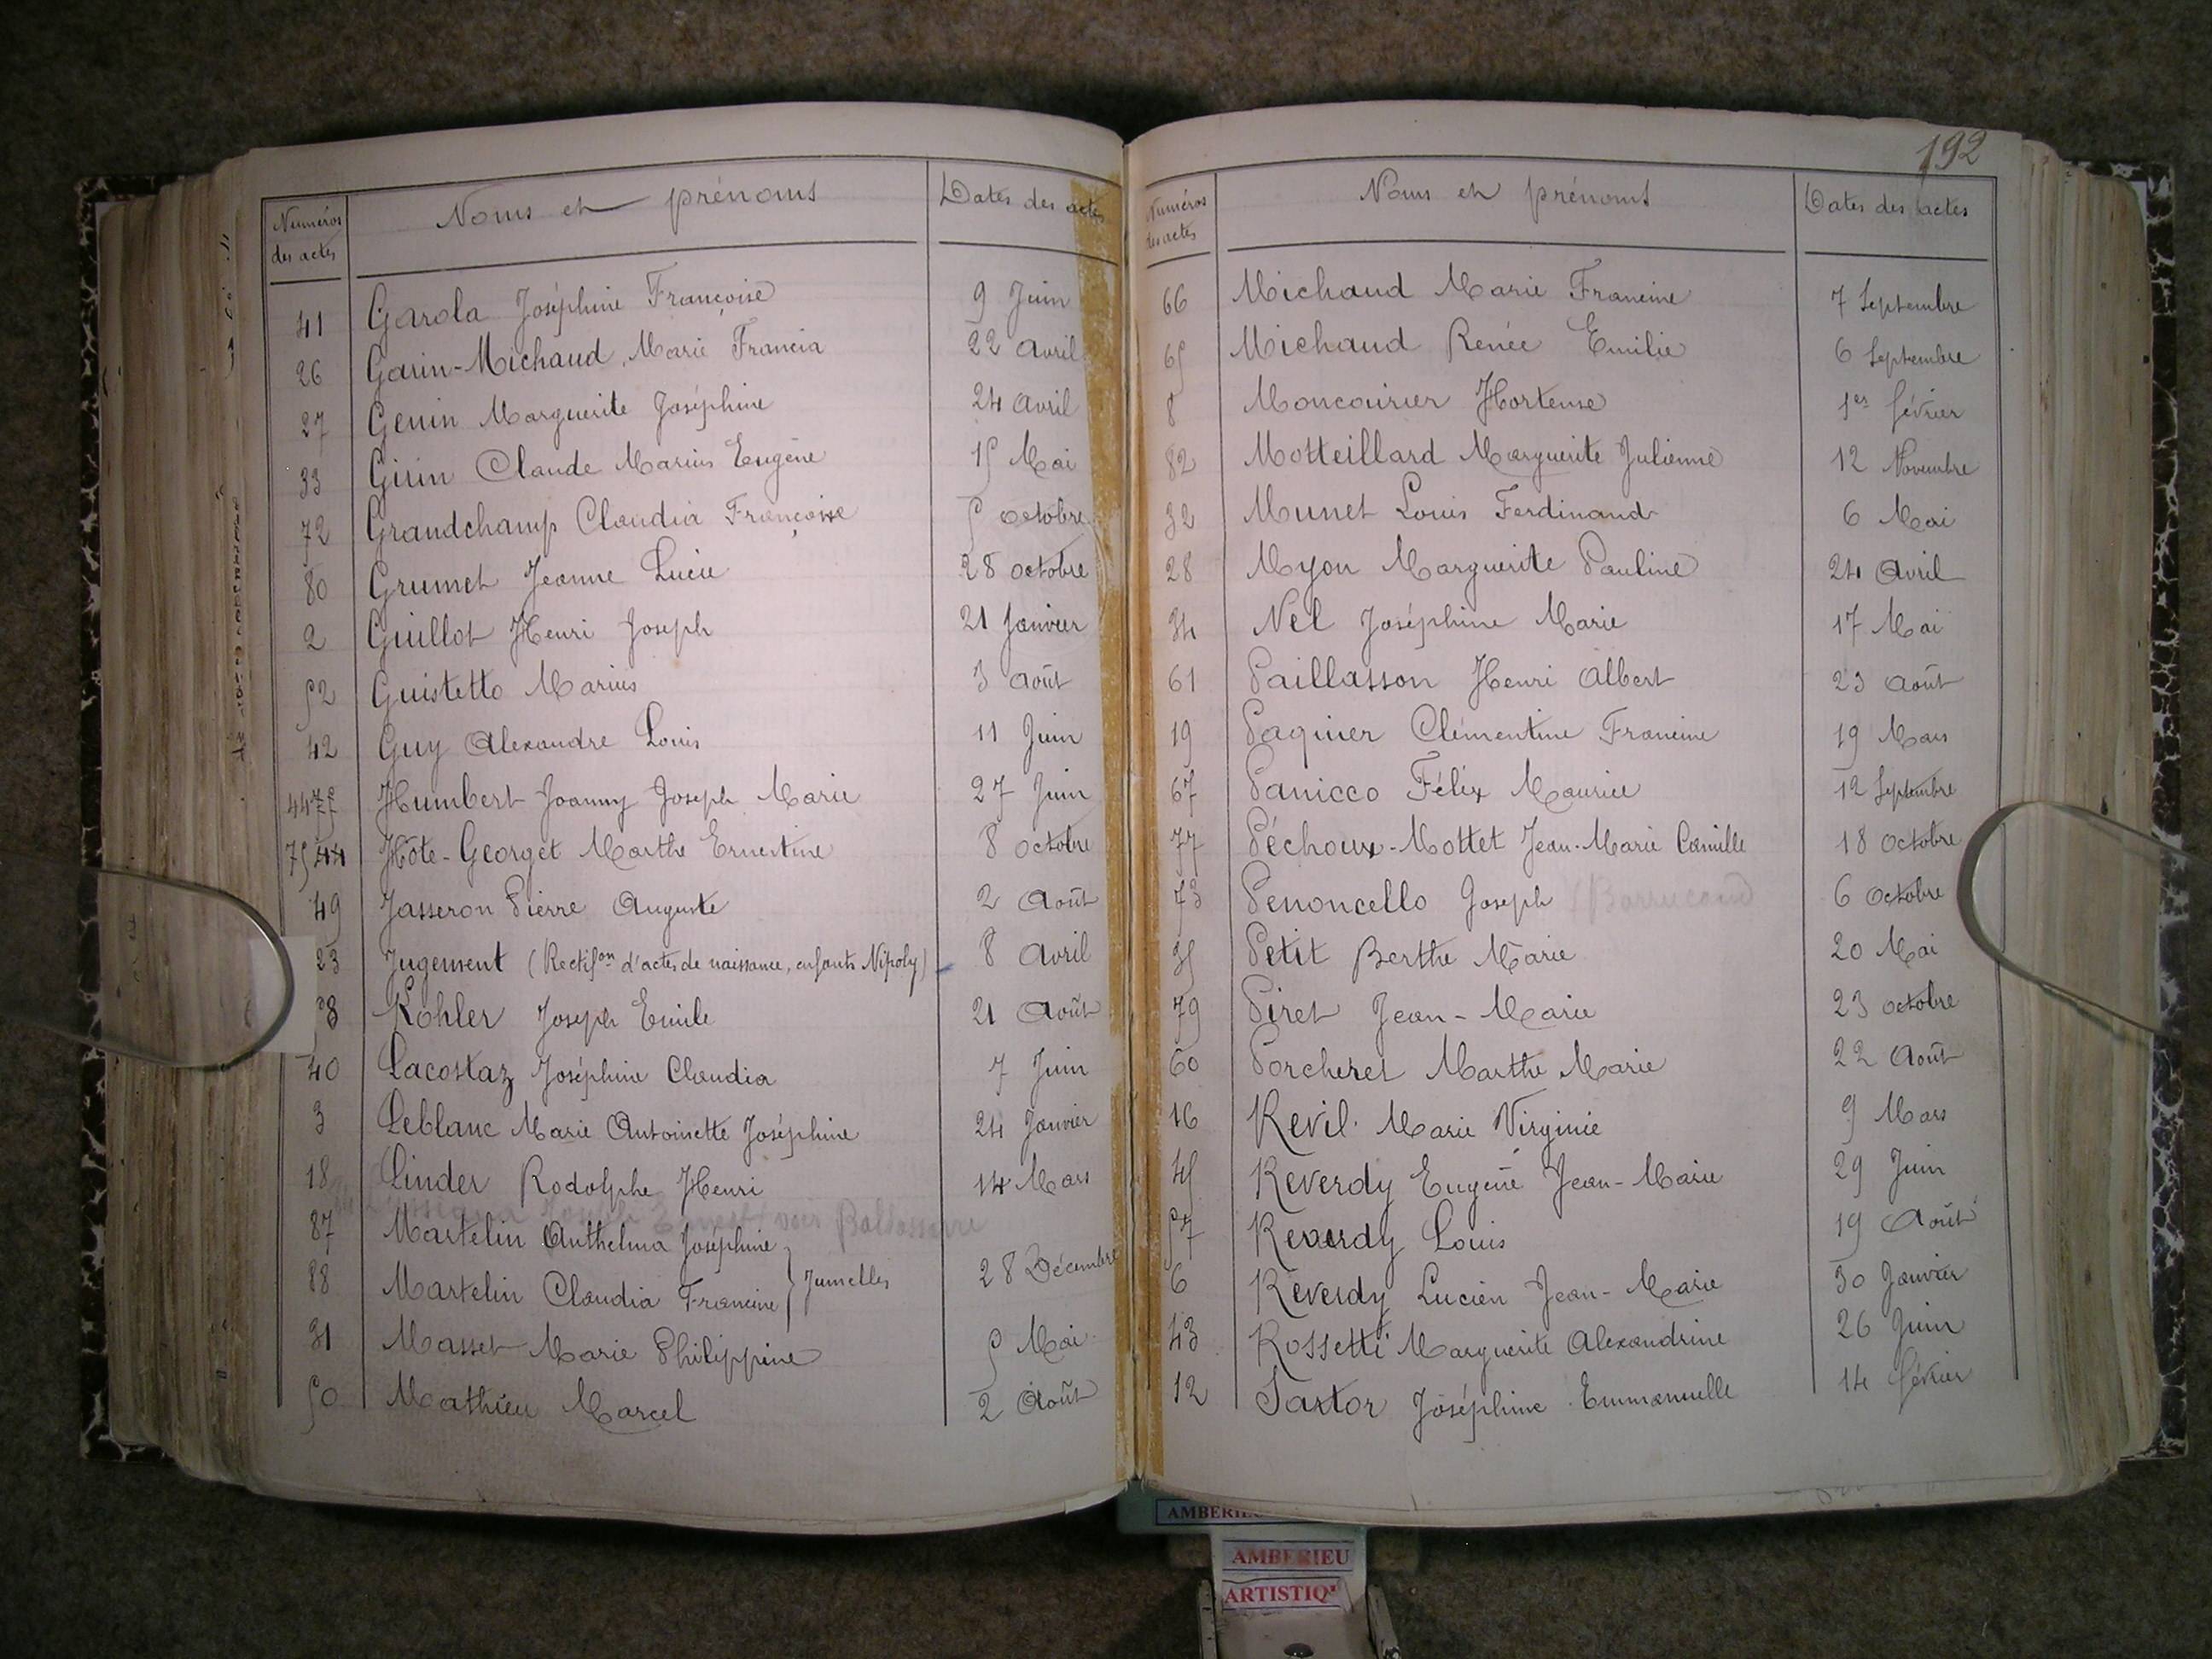 Numéros des actes | Noms et prénoms | Dates des actes
41 Garola Joséphine Françoise 9 Juin
26 Garin-Michaud Marie Francia 22 Avril
27 Genin Marguerite Joséphine 24 Avril
33 Girin Claude Marius Eugène 15 Mai
72 Grandchamp Claudia Françoise 5 octobre
80 Grumet Jeanne Lucie 28 octobre
2 Guillot Henri Joseph 21 Janvier
52 Guistetto Marius 3 Août
42 Guy Alexandre Louis 11 Juin
44 Humbert Joanny Joseph Marie 27 Juin
75 Hôte-Georget Marthe Ernestine 8 octobre
49 Jasseron Pierre Auguste 2 Août
23 Jugement (Rectifon d'actes de naissance, enfants Nipoly) 8 Avril
Kohler Joseph Emile 21 Août
40 Lacostaz Joséphine Claudia 7 Juin
3 Leblanc Marie Antoinette Joséphine 24 Janvier
18 Linder Rodolphe Henri 14 Mars
87 Martelin Anthelma Joséphine
88 Martelin Claudia Francine } Jumelles 28 Décembre
31 Masset Marie Philippine 5 Mai
50 Mathieu Marcel 2 Août
192
Numéros des actes | Noms et prénoms | Dates des actes
66 Michaud Marie Francine 7 Septembre
65 Michaud Renée Emilie 6 Septembre
8 Moncourier Hortense 1er février
82 Motteillard Marguerite Julienne 12 Novembre
32 Munet Louis Ferdinand 6 Mai
28 Myon Marguerite Pauline 24 Avril
34 Nel Joséphine Marie 17 Mai
61 Paillasson Henri Albert 23 Août
19 Paquier Clémentine Francine 19 Mars
67 Panicco Félix Maurice 12 Septembre
77 Péchoux-Mottet Jean-Marie Camille 18 Octobre
73 Penoncello Joseph (Barrucand) 6 Octobre
35 Petit Berthe Marie 20 Mai
79 Piret Jean-Marie 23 octobre
60 Porcheret Marthe Marie 22 Août
16 Revil Marie Virginie 9 Mars
45 Reverdy Eugène Jean-Marie 29 Juin
57 Reverdy Louis 19 Août
6 Reverdy Lucien Jean-Marie 30 Janvier
43 Rossetti Marguerite Alexandrine 26 Juin
12 Sartor Joséphine Emmanuelle 14 février
AMBERIEU
ARTISTIQ